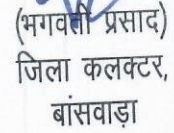 (भगवती प्रसाद)
जिला कलक्टर,
बांसवाड़ा